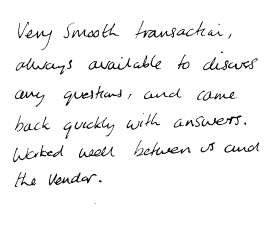 Very smooth transaction,
always available to discuss
any questions, and came
back quickly with answers.
Worked well between us and
the vendor.